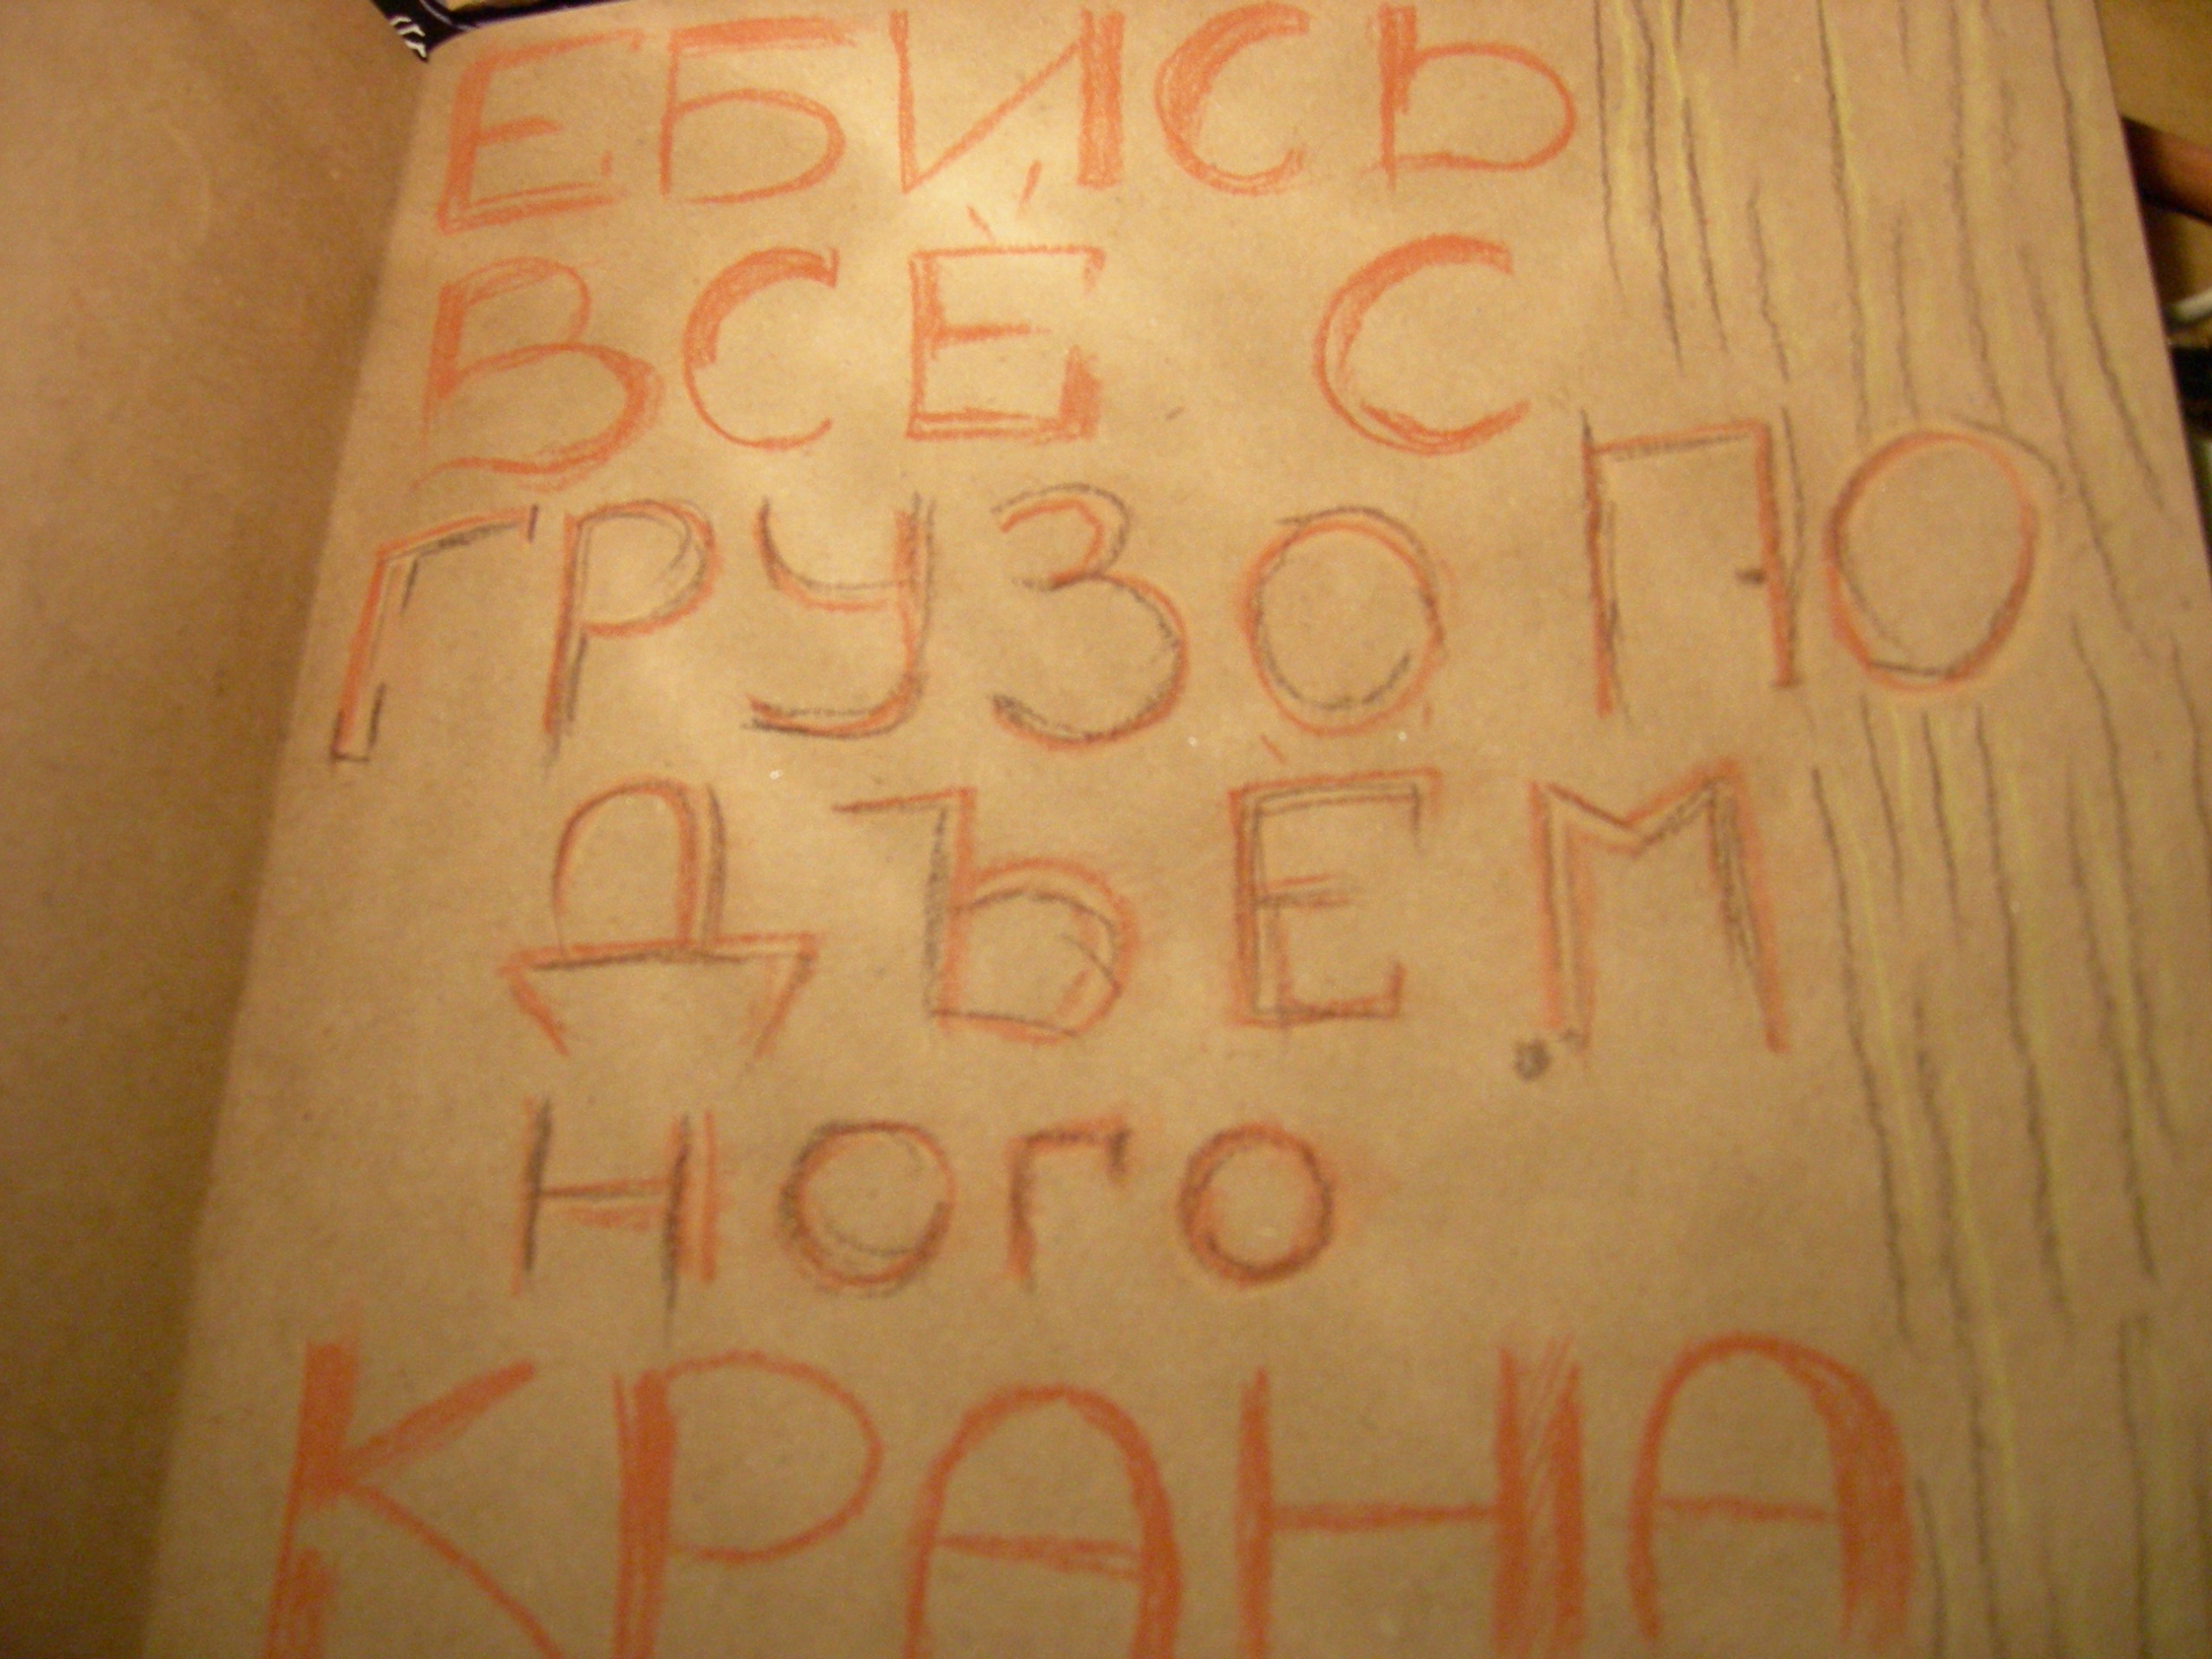 ЕБИСЬ
ВСЁ С
ГРУЗОПО
ДЪЁМ
НОГО
КРАНА